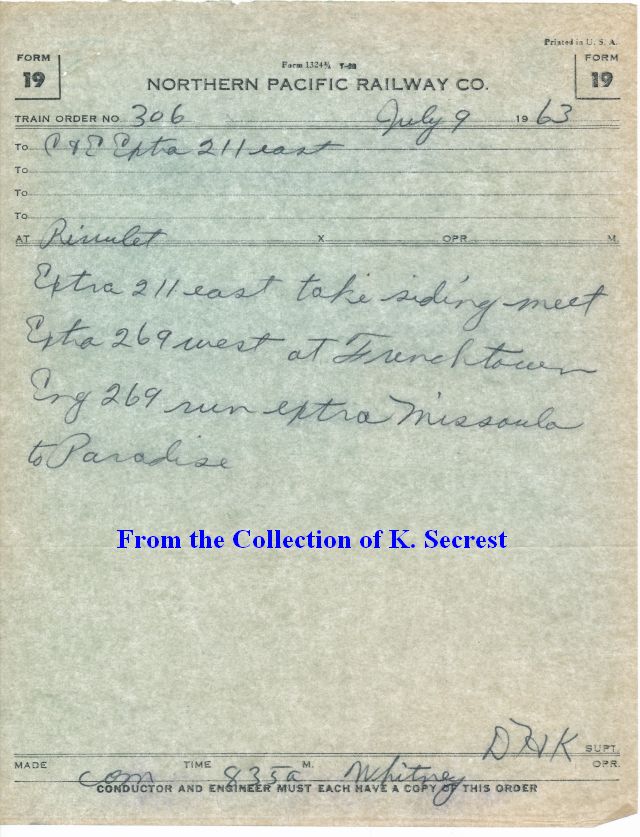 Printed in U. S. A.
FORM 19
Form 1324¾ T-28
FORM 19
NORTHERN PACIFIC RAILWAY CO.
TRAIN ORDER NO. 306 July 9 1963
To C & E Extra 211 east
To
To
To
AT Rivulet X OPR. M.
Extra 211 east take siding meet
Extra 269 west at Frenchtown
Eng 269 run extra Missoula
to Paradise
From the Collection of K. Secrest
DHK SUPT.
MADE com TIME 835a M. Whitney OPR.
CONDUCTOR AND ENGINEER MUST EACH HAVE A COPY OF THIS ORDER